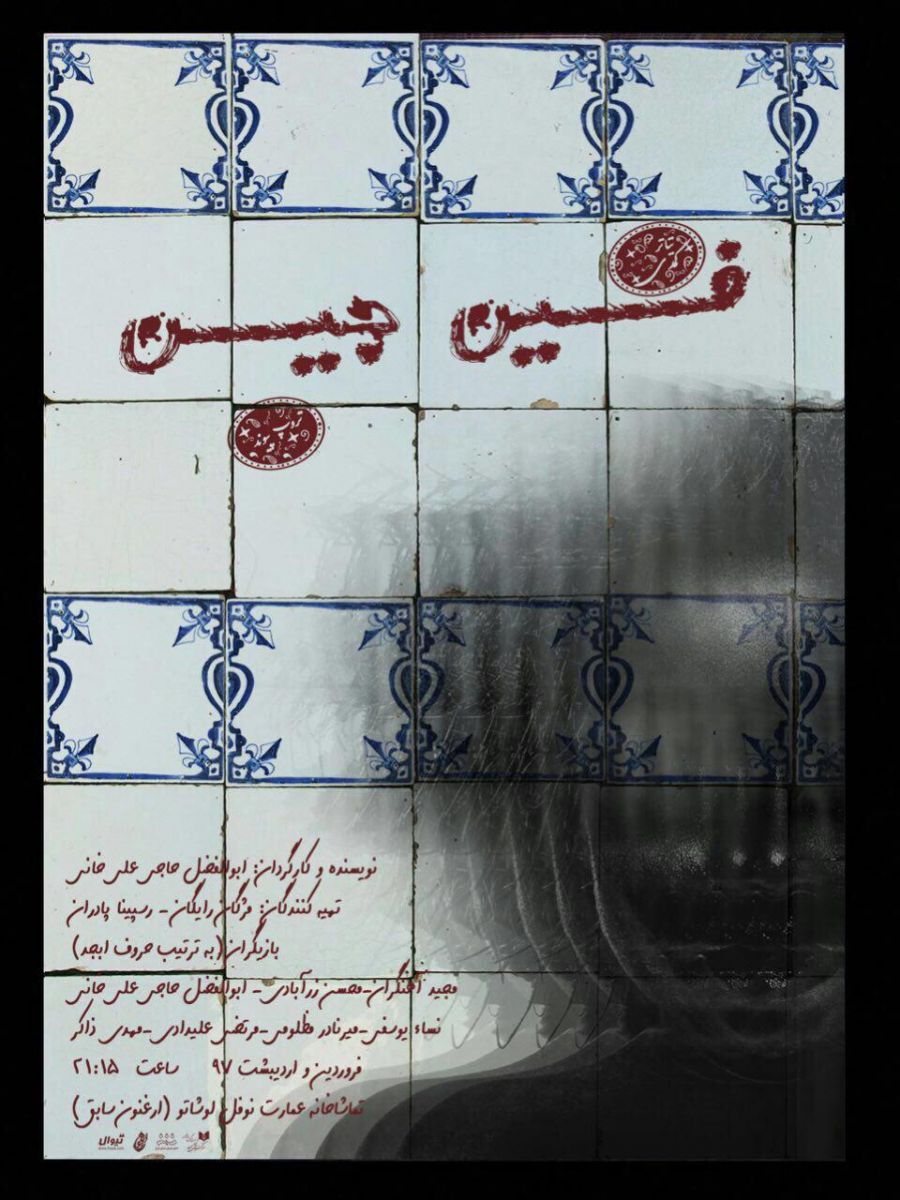 تئاتر
کمدی
فسین جیسن
نویسنده و کارگردان: ابوالفضل حاجی علی خانی
تهیه کنندگان: مژگان رایگان - رسپینا پادران
بازیگران (به ترتیب حروف ابجد)
مجید آهنگران - محسن زرآبادی - ابوالفضل حاجی علی خانی
نساء یوسفی - میرنادر مظلومی - مرتضی علیدادی - مهدی ذاکر
فروردین و اردیبشت ۹۷ ساعت ۲۱:۱۵
تماشاخانه عمارت نوفل لوشاتو (ارغنون سابق)
تیوال